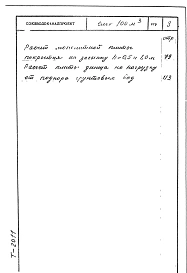 СОЮЗВОДОКАНАЛПРОЕКТ
100 м³
стр
3
стр.
Расчет монолитной плиты
покрытия на засыпку h=0,5 и 1,0м
73
Расчет плиты днища на нагрузку
от подпора грунтовых вод
113
Т-2011